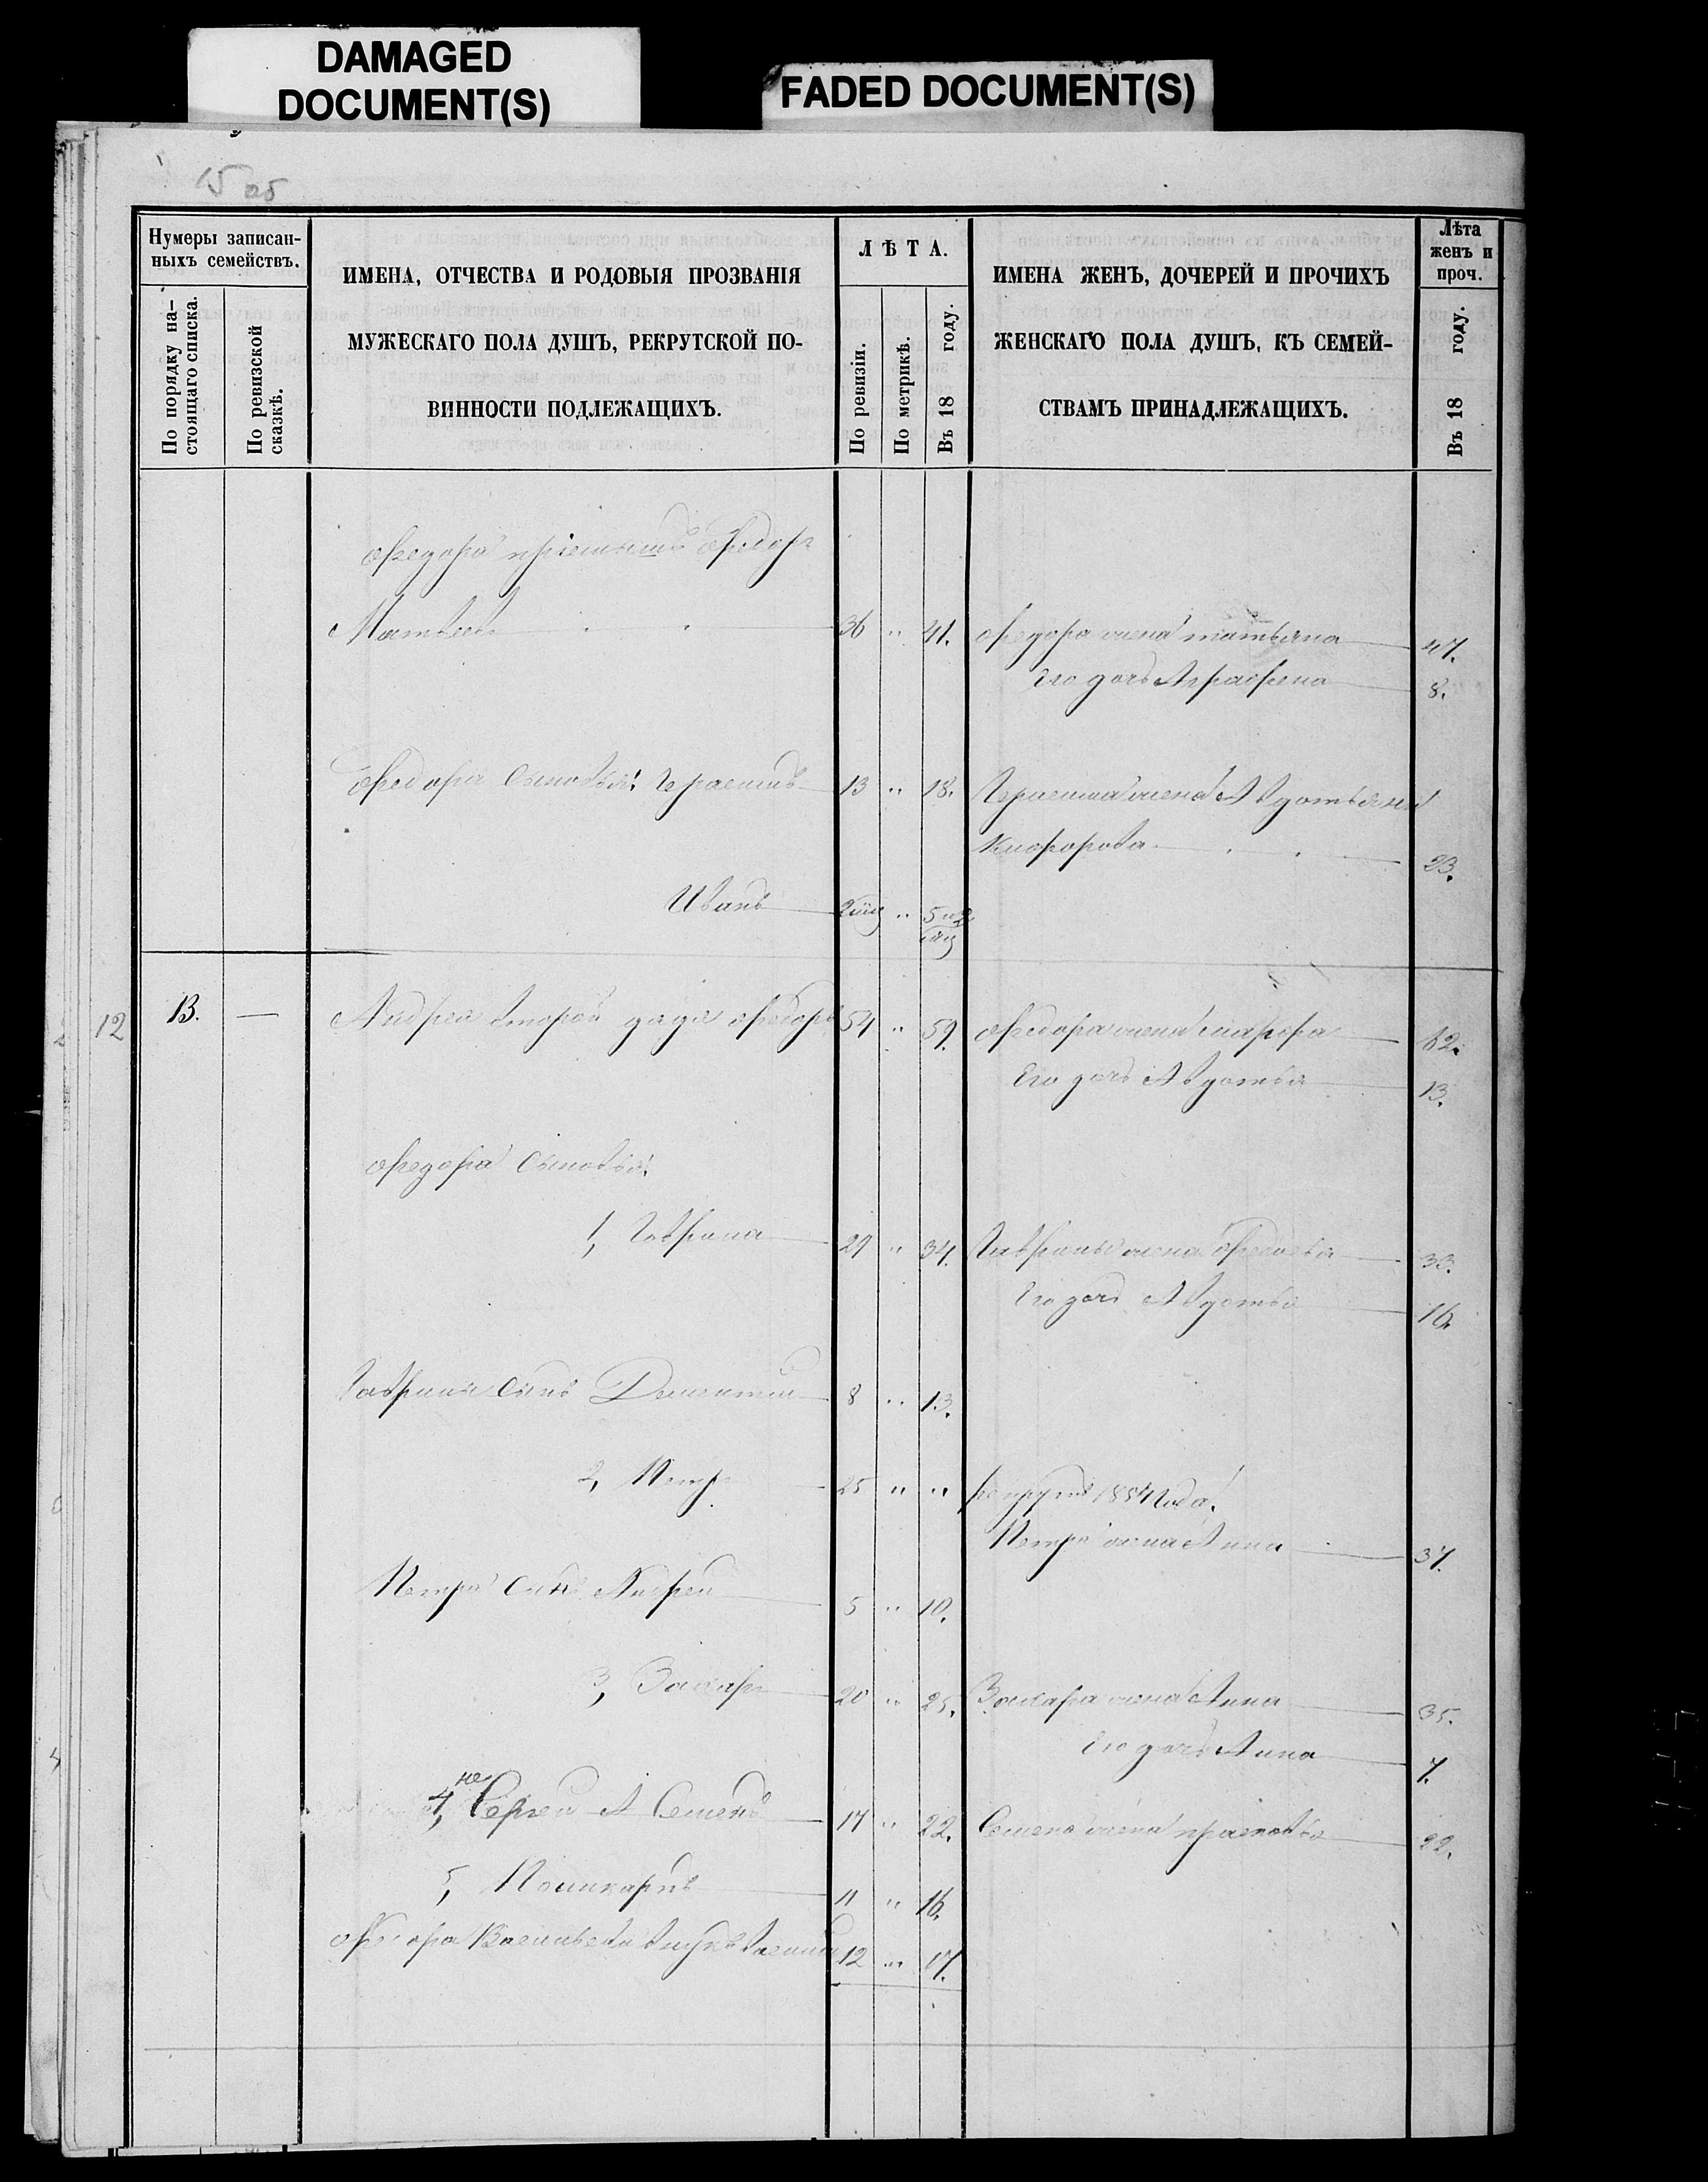 DAMAGED
DOCUMENT(S)
FADED DOCUMENT(S)
15 об
Нумеры записан-
ныхъ семействъ.
По порядку на-
стоящаго списка.
По ревизской
сказкѣ.
ИМЕНА, ОТЧЕСТВА И РОДОВЫЯ ПРОЗВАНІЯ
МУЖЕСКАГО ПОЛА ДУШЪ, РЕКРУТСКОЙ ПО-
ВИННОСТИ ПОДЛЕЖАЩИХЪ.
ЛѢТА.
По ревизіи.
По метрикѣ.
Въ 18 году.
ИМЕНА ЖЕНЪ, ДОЧЕРЕЙ И ПРОЧИХЪ
ЖЕНСКАГО ПОЛА ДУШЪ, КЪ СЕМЕЙ-
СТВАМЪ ПРИНАДЛЕЖАЩИХЪ.
Лѣта
женъ и
проч.
Въ 18 году.
Федора пріемышъ Федоръ
Матвеевъ 36 " 41. Федора жена татьяна 47.
Его дочь Аграфена 8.
Федора Сыновья: Герасимъ 13 " 18. Герасима жена Авдотья ни
кифорова 23.
Иванъ 2 мц " 5 и 2
мц
12 13. — Андрея второй дядя Федоръ 54 " 59. Федора жена марфа 62.
Его дочь Авдотья 13.
Федора Сыновья:
1, Гаврила 29 " 34. Гаврилы жена Федосья 33.
Его дочь Авдотья 16.
Гаврилы Сынъ Дементий 8 " 13.
2, Петръ 25 " " рекрутъ 1854 года.
Петра жена Анна 37.
Петра Сынъ Андрей 5 " 10.
3, Захаръ 20 " 25. Захара жена Анна 35.
Его дочь Анна 7.
не
4, Сергей А Семенъ 17 " 22. Семена жена прасковья 22.
5, Поликарпъ 11 " 16.
Федора Васильева внукъ 12 " 17.